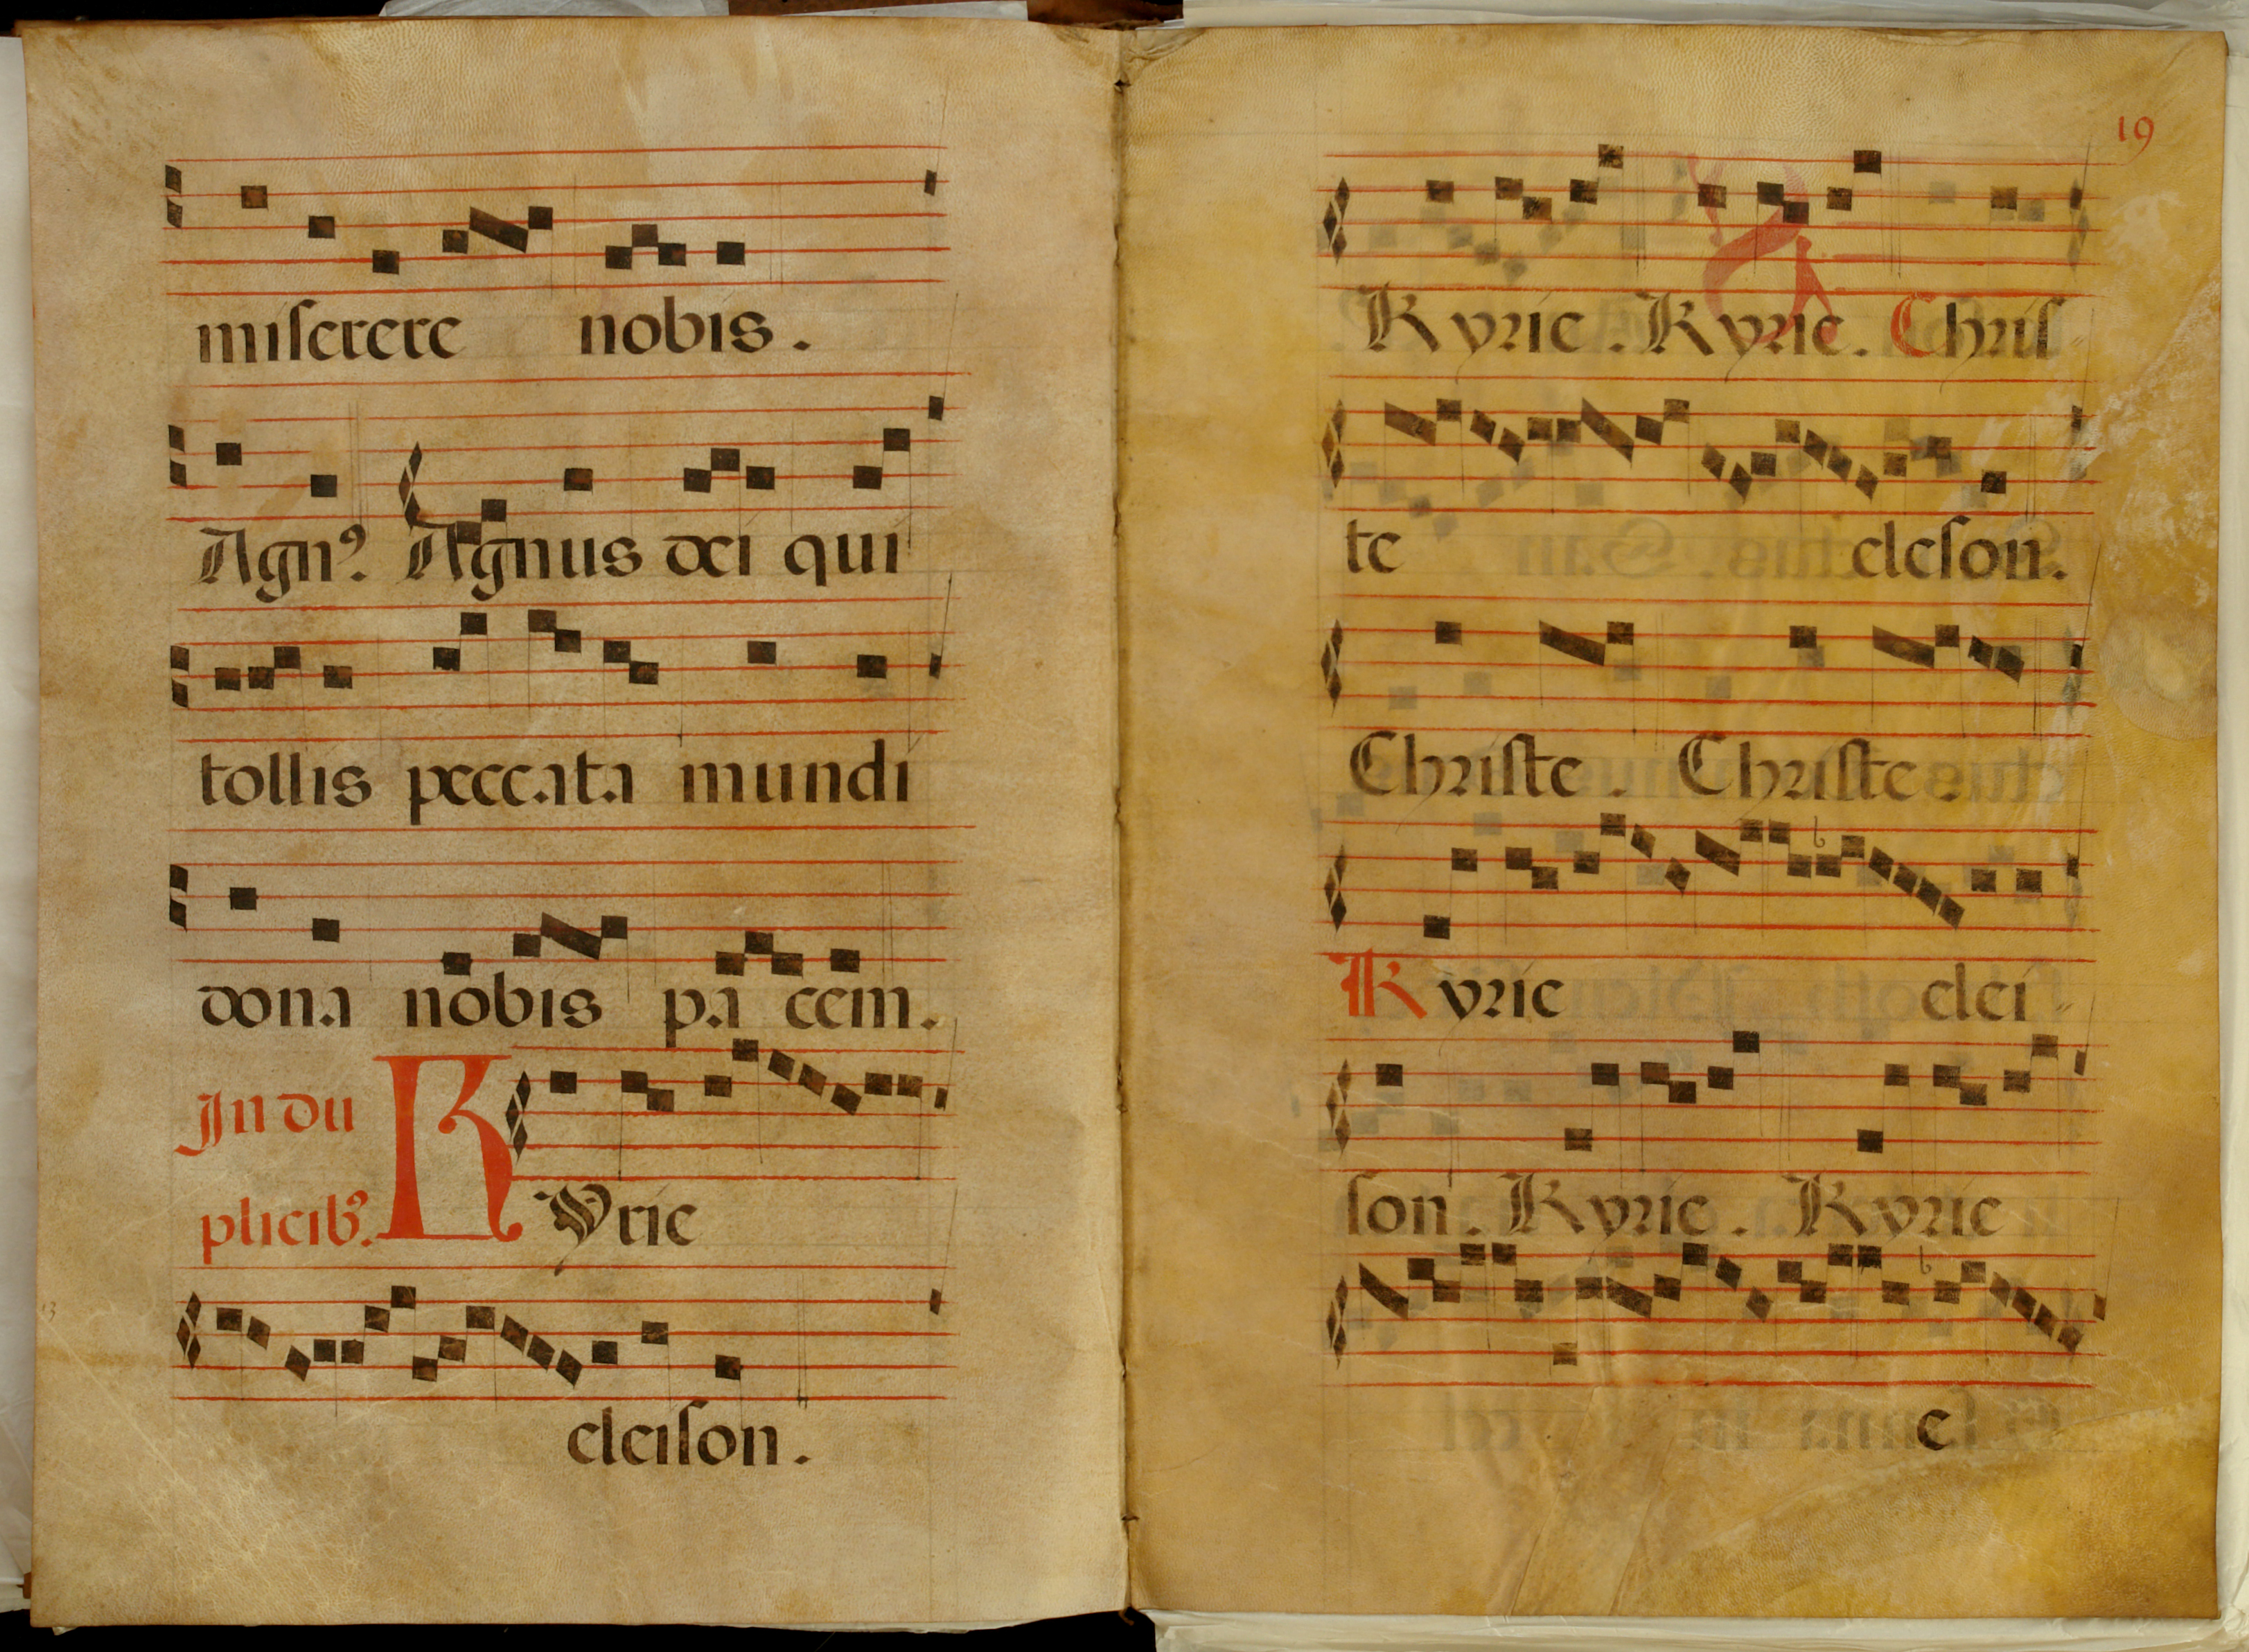 miserere nobis.
Agnꝰ. Agnus dei qui
tollis peccata mundi
dona nobis pa cem.
In du
plicibꝰ.
Kyrie
eleison.
19
Kyrie. Kyrie. Chris
te eleson.
Christe. Christe.
Kyrie elei
son. Kyrie. Kyrie
e